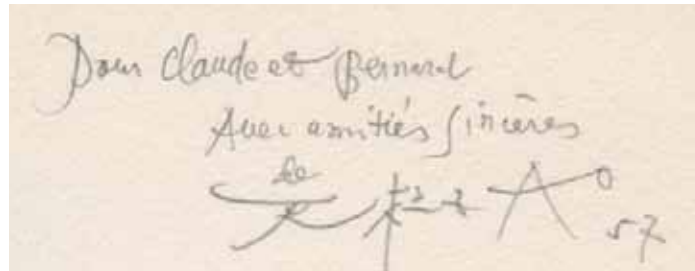 Pour Claude et Bernard
Avec amitiés sincères
de
无极 ZAO 57